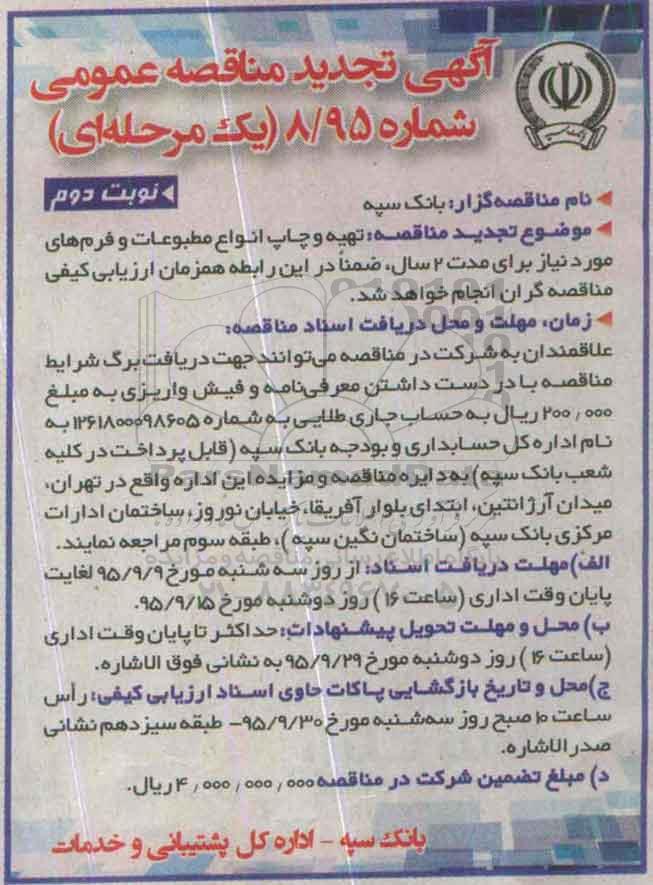 آگهی تجدید مناقصه عمومی
شماره ۸/۹۵ (یک مرحله‌ای)
بانک سپه
نوبت دوم
نام مناقصه‌گزار: بانک سپه
موضوع تجدید مناقصه: تهیه و چاپ انواع مطبوعات و فرم‌های
مورد نیاز برای مدت ۲ سال، ضمناً در این رابطه همزمان ارزیابی کیفی
مناقصه گران انجام خواهد شد.
زمان، مهلت و محل دریافت اسناد مناقصه:
علاقمندان به شرکت در مناقصه می‌توانند جهت دریافت برگ شرایط
مناقصه با در دست داشتن معرفی‌نامه و فیش واریزی به مبلغ
۲۰۰٫۰۰۰ ریال به حساب جاری طلایی به شماره ۱۲۶۱۸۰۰۰۹۸۶۰۵ به
نام اداره کل حسابداری و بودجه بانک سپه (قابل پرداخت در کلیه
شعب بانک سپه) به دایره مناقصه و مزایده این اداره واقع در تهران،
میدان آرژانتین، ابتدای بلوار آفریقا، خیابان نوروز، ساختمان ادارات
مرکزی بانک سپه (ساختمان نگین سپه)، طبقه سوم مراجعه نمایند.
الف) مهلت دریافت اسناد: از روز سه شنبه مورخ ۹۵/۹/۹ لغایت
پایان وقت اداری (ساعت ۱۶) روز دوشنبه مورخ ۹۵/۹/۱۵.
ب) محل و مهلت تحویل پیشنهادات: حداکثر تا پایان وقت اداری
(ساعت ۱۶) روز دوشنبه مورخ ۹۵/۹/۲۹ به نشانی فوق الاشاره.
ج) محل و تاریخ بازگشایی پاکات حاوی اسناد ارزیابی کیفی: رأس
ساعت ۱۰ صبح روز سه‌شنبه مورخ ۹۵/۹/۳۰- طبقه سیزدهم نشانی
صدرالاشاره.
د) مبلغ تضمین شرکت در مناقصه ۴٫۰۰۰٫۰۰۰٫۰۰۰ ریال.
بانک سپه - اداره کل پشتیبانی و خدمات